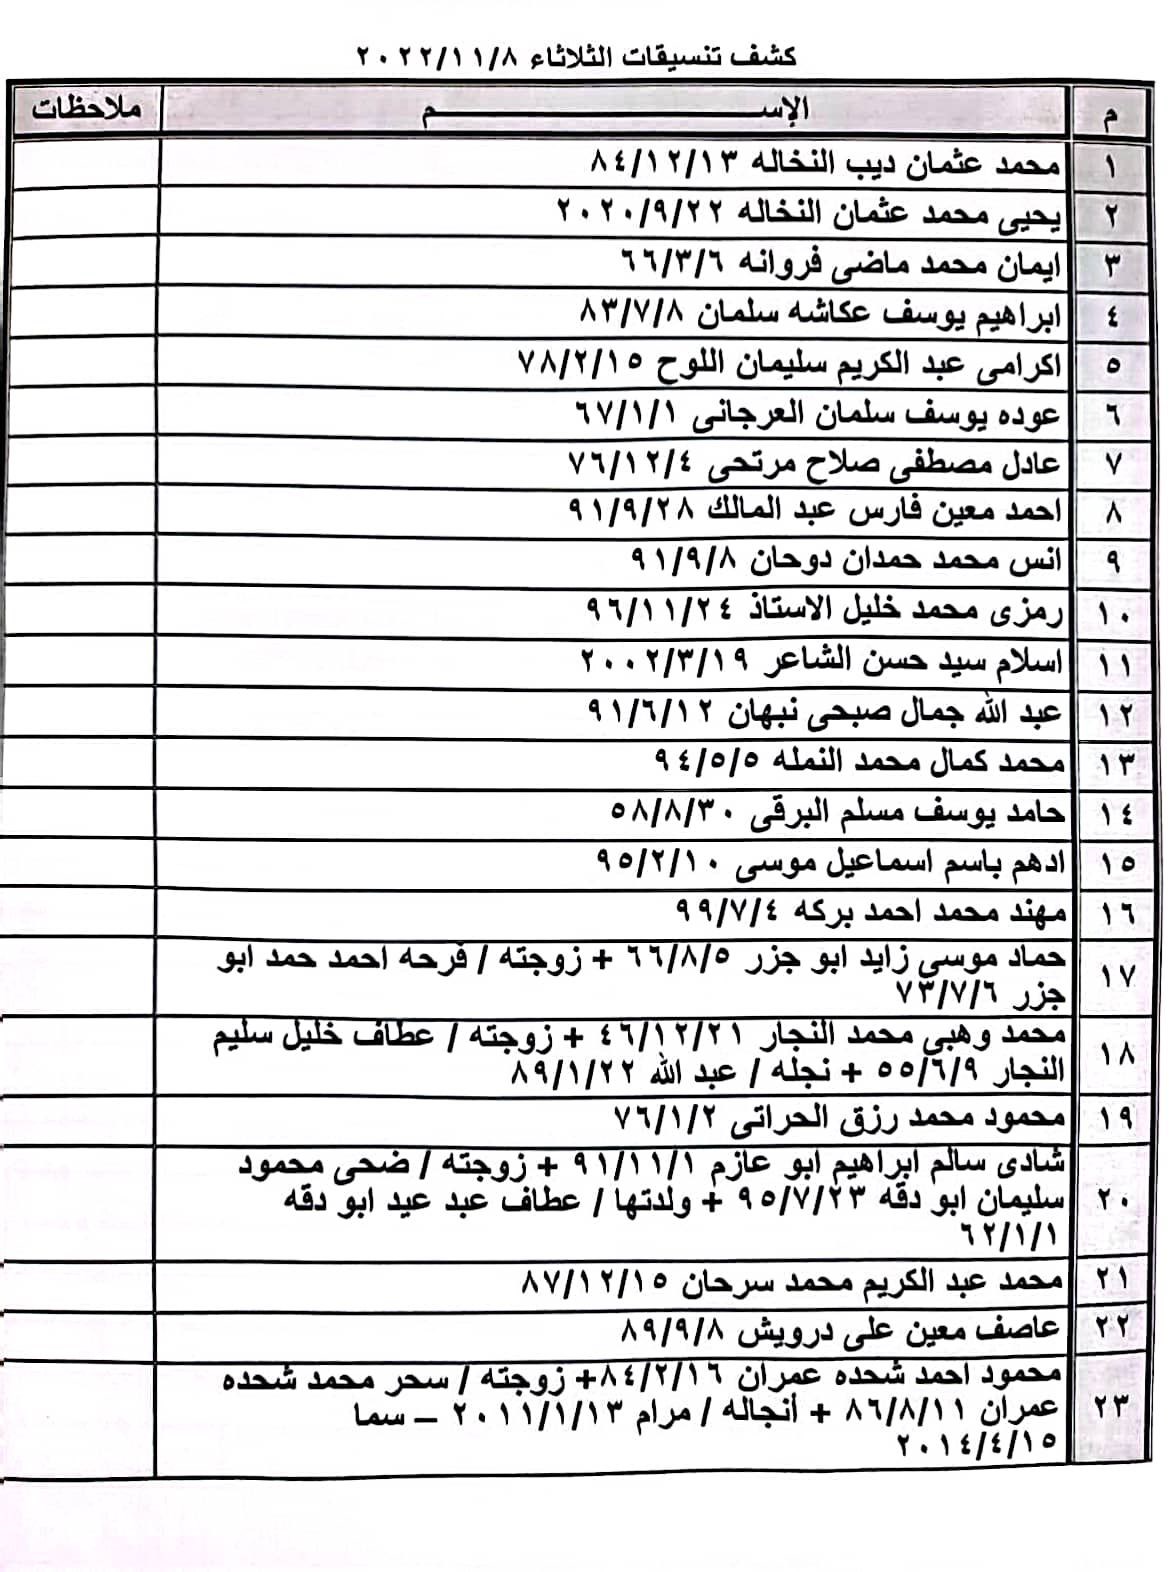 كشف تنسيقات الثلاثاء ٢٠٢٢/١١/٨
م الإســـــــــــــــــــــم ملاحظات
١ محمد عثمان ديب النخاله ٨٤/١٢/١٣
٢ يحيى محمد عثمان النخاله ٢٠٢٠/٩/٢٢
٣ ايمان محمد ماضى فروانه ٦٦/٣/٦
٤ ابراهيم يوسف عكاشه سلمان ٨٣/٧/٨
٥ اكرامى عبد الكريم سليمان اللوح ٧٨/٢/١٥
٦ عوده يوسف سلمان العرجانى ٦٧/١/١
٧ عادل مصطفى صلاح مرتحى ٧٦/١٢/٤
٨ احمد معين فارس عبد المالك ٩١/٩/٢٨
٩ انس محمد حمدان دوحان ٩١/٩/٨
١٠ رمزى محمد خليل الاستاذ ٩٦/١١/٢٤
١١ اسلام سيد حسن الشاعر ٢٠٠٢/٣/١٩
١٢ عبد الله جمال صبحى نبهان ٩١/٦/١٢
١٣ محمد كمال محمد النمله ٩٤/٥/٥
١٤ حامد يوسف مسلم البرقى ٥٨/٨/٣٠
١٥ ادهم باسم اسماعيل موسى ٩٥/٢/١٠
١٦ مهند محمد احمد بركه ٩٩/٧/٤
١٧ حماد موسى زايد ابو جزر ٦٦/٨/٥ + زوجته / فرحه احمد حمد ابو
جزر ٧٣/٧/٦
١٨ محمد وهبى محمد النجار ٤٦/١٢/٢١ + زوجته / عطاف خليل سليم
النجار ٥٥/٦/٩ + نجله / عبد الله ٨٩/١/٢٢
١٩ محمود محمد رزق الحراتى ٧٦/١/٢
٢٠ شادى سالم ابراهيم ابو عازم ٩١/١١/١ + زوجته / ضحى محمود
سليمان ابو دقه ٩٥/٧/٢٣ + ولدتها / عطاف عبد عيد ابو دقه
٦٢/١/١
٢١ محمد عبد الكريم محمد سرحان ٨٧/١٢/١٥
٢٢ عاصف معين على درويش ٨٩/٩/٨
٢٣ محمود احمد شحده عمران ٨٤/٢/١٦+ زوجته / سحر محمد شحده
عمران ٨٦/٨/١١ + أنجاله / مرام ٢٠١١/١/١٣ – سما
٢٠١٤/٤/١٥